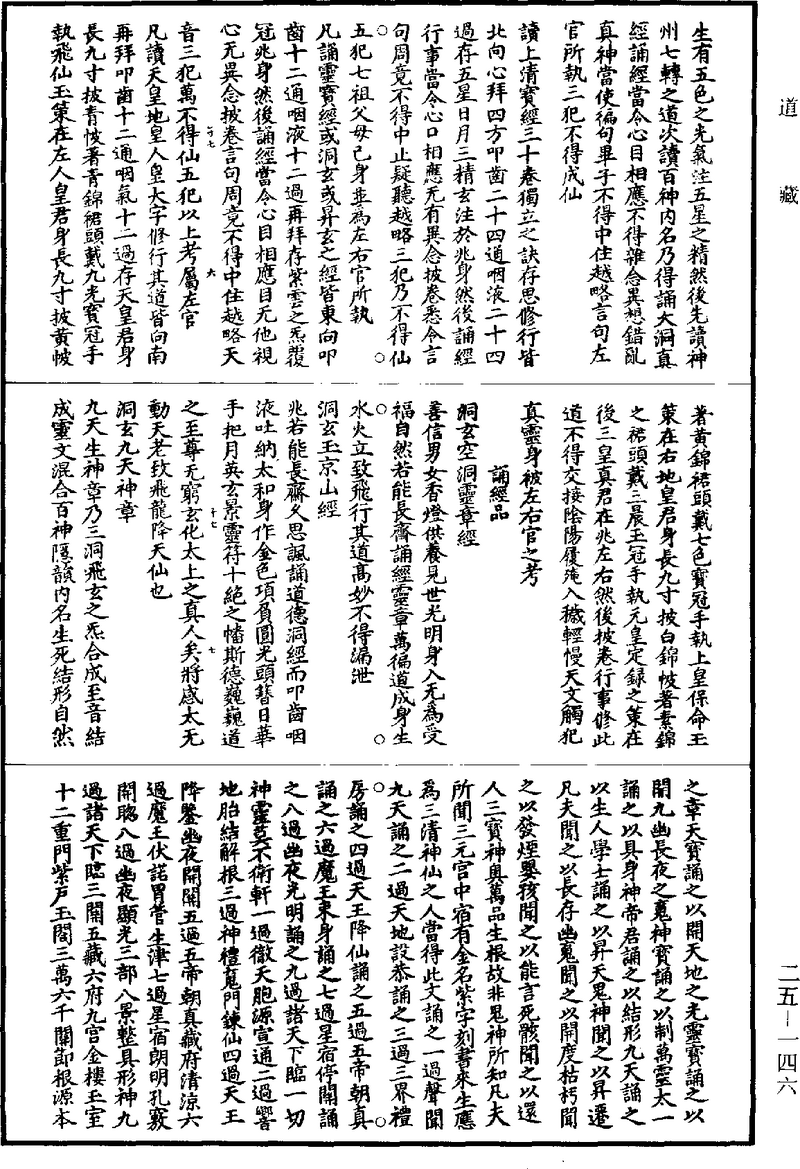 道藏
生有五色之光氣注五星之精然後先讀神
州七轉之道次讀百神內名乃得誦大洞真
經誦經當令心目相應不得雜念異想錯亂
真神當使徧句畢乎不得中住越略言句左
官所執三犯不得成仙
讀上清寶經三十卷獨立之訣存思修行皆
北向心拜四方叩齒二十四通咽液二十四
過存五星日月三精玄注於兆身然後誦經
行事當令心口相應无有異念披卷悉令言
句周竟不得中止疑聽越略三犯乃不得仙
五犯七祖父母己身並為左右官所執
凡誦靈寶經或洞玄或昇玄之經皆東向叩
齒十二通咽液十二過再拜存紫雲之炁覆
冠兆身然後誦經當令心目相應目无他視
心无異念披卷言句周竟不得中住越略天
音三犯萬不得仙五犯以上考屬左官
凡讀天皇地皇人皇大字修行其道皆向南
再拜叩齒十二通咽氣十二過存天皇君身
長九寸披青帔著青錦裙頭戴九光寶冠手
執飛仙玉策在左人皇君身長九寸披黃帔
著黃錦裙頭戴七色寶冠手執上皇保命玉
策在右地皇君身長九寸披白錦帔著素錦
之裙頭戴三晨玉冠手執元皇定錄之策在
後三皇真君在兆左右然後披卷行事修此
道不得交接陰陽履淹入穢輕慢天文觸犯
真靈身被左右官之考
誦經品
洞玄空洞靈章經
善信男女香燈供養見世光明身入无為受
福自然若能長齋誦經靈章萬徧道成身生
水火立致飛行其道高妙不得漏泄
洞玄玉京山經
兆若能長齋久思諷誦道德洞經而叩齒咽
液吐納太和身作金色項負圓光頭簪日華
手把月英玄景靈符十絕之幡斯德巍巍道
之至尊无窮玄化太上之真人矣將感太无
動天老致飛龍降天仙也
洞玄九天神章
九天生神章乃三洞飛玄之炁合成至音結
成靈文混合百神隱韻內名生死結形自然
之章天寶誦之以開天地之光靈寶誦之以
開九幽長夜之䰟神寶誦之以制萬靈太一
誦之以具身神帝君誦之以結形九天誦之
以生人學士誦之以昇天鬼神聞之以昇遷
凡夫聞之以長存幽䰟聞之以開度枯朽聞
之以發煙嬰孩聞之以能言死骸聞之以還
人三寶神奧萬品生根故非鬼神所知凡夫
所聞三元宮中宿有金名紫字刻書來生應
為三清神仙之人當得此文誦之一過聲聞
九天誦之二過天地設恭誦之三過三界禮
房誦之四過天王降仙誦之五過五帝朝真
誦之六過魔王束身誦之七過星宿停關誦
之八過幽夜光明誦之九過諸天下臨一切
神靈莫不衛軒一過徹天胞源宣通二過響
地胎結解根三過神禮䰟門鍊仙四過天王
降鑒幽夜開關五過五帝朝真藏府清涼六
過魔王伏諾胃管生津七過星宿朗明孔竅
開聰八過幽夜顯光三部八景整具形神九
過諸天下臨三關五藏六府九宮金樓玉室
十二重門紫戶玉閤三萬六千關節根源本
二五－一四六